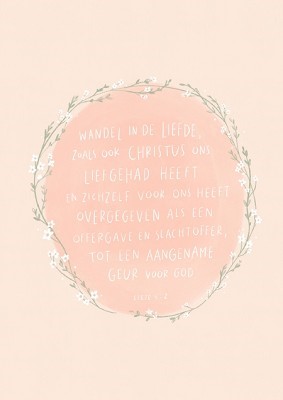 WANDEL IN DE LIEFDE,
ZOALS OOK CHRISTUS ONS
LIEFGEHAD HEEFT
EN ZICHZELF VOOR ONS HEEFT
OVERGEGEVEN ALS EEN
OFFERGAVE EN SLACHTOFFER,
TOT EEN AANGENAME
GEUR VOOR GOD.